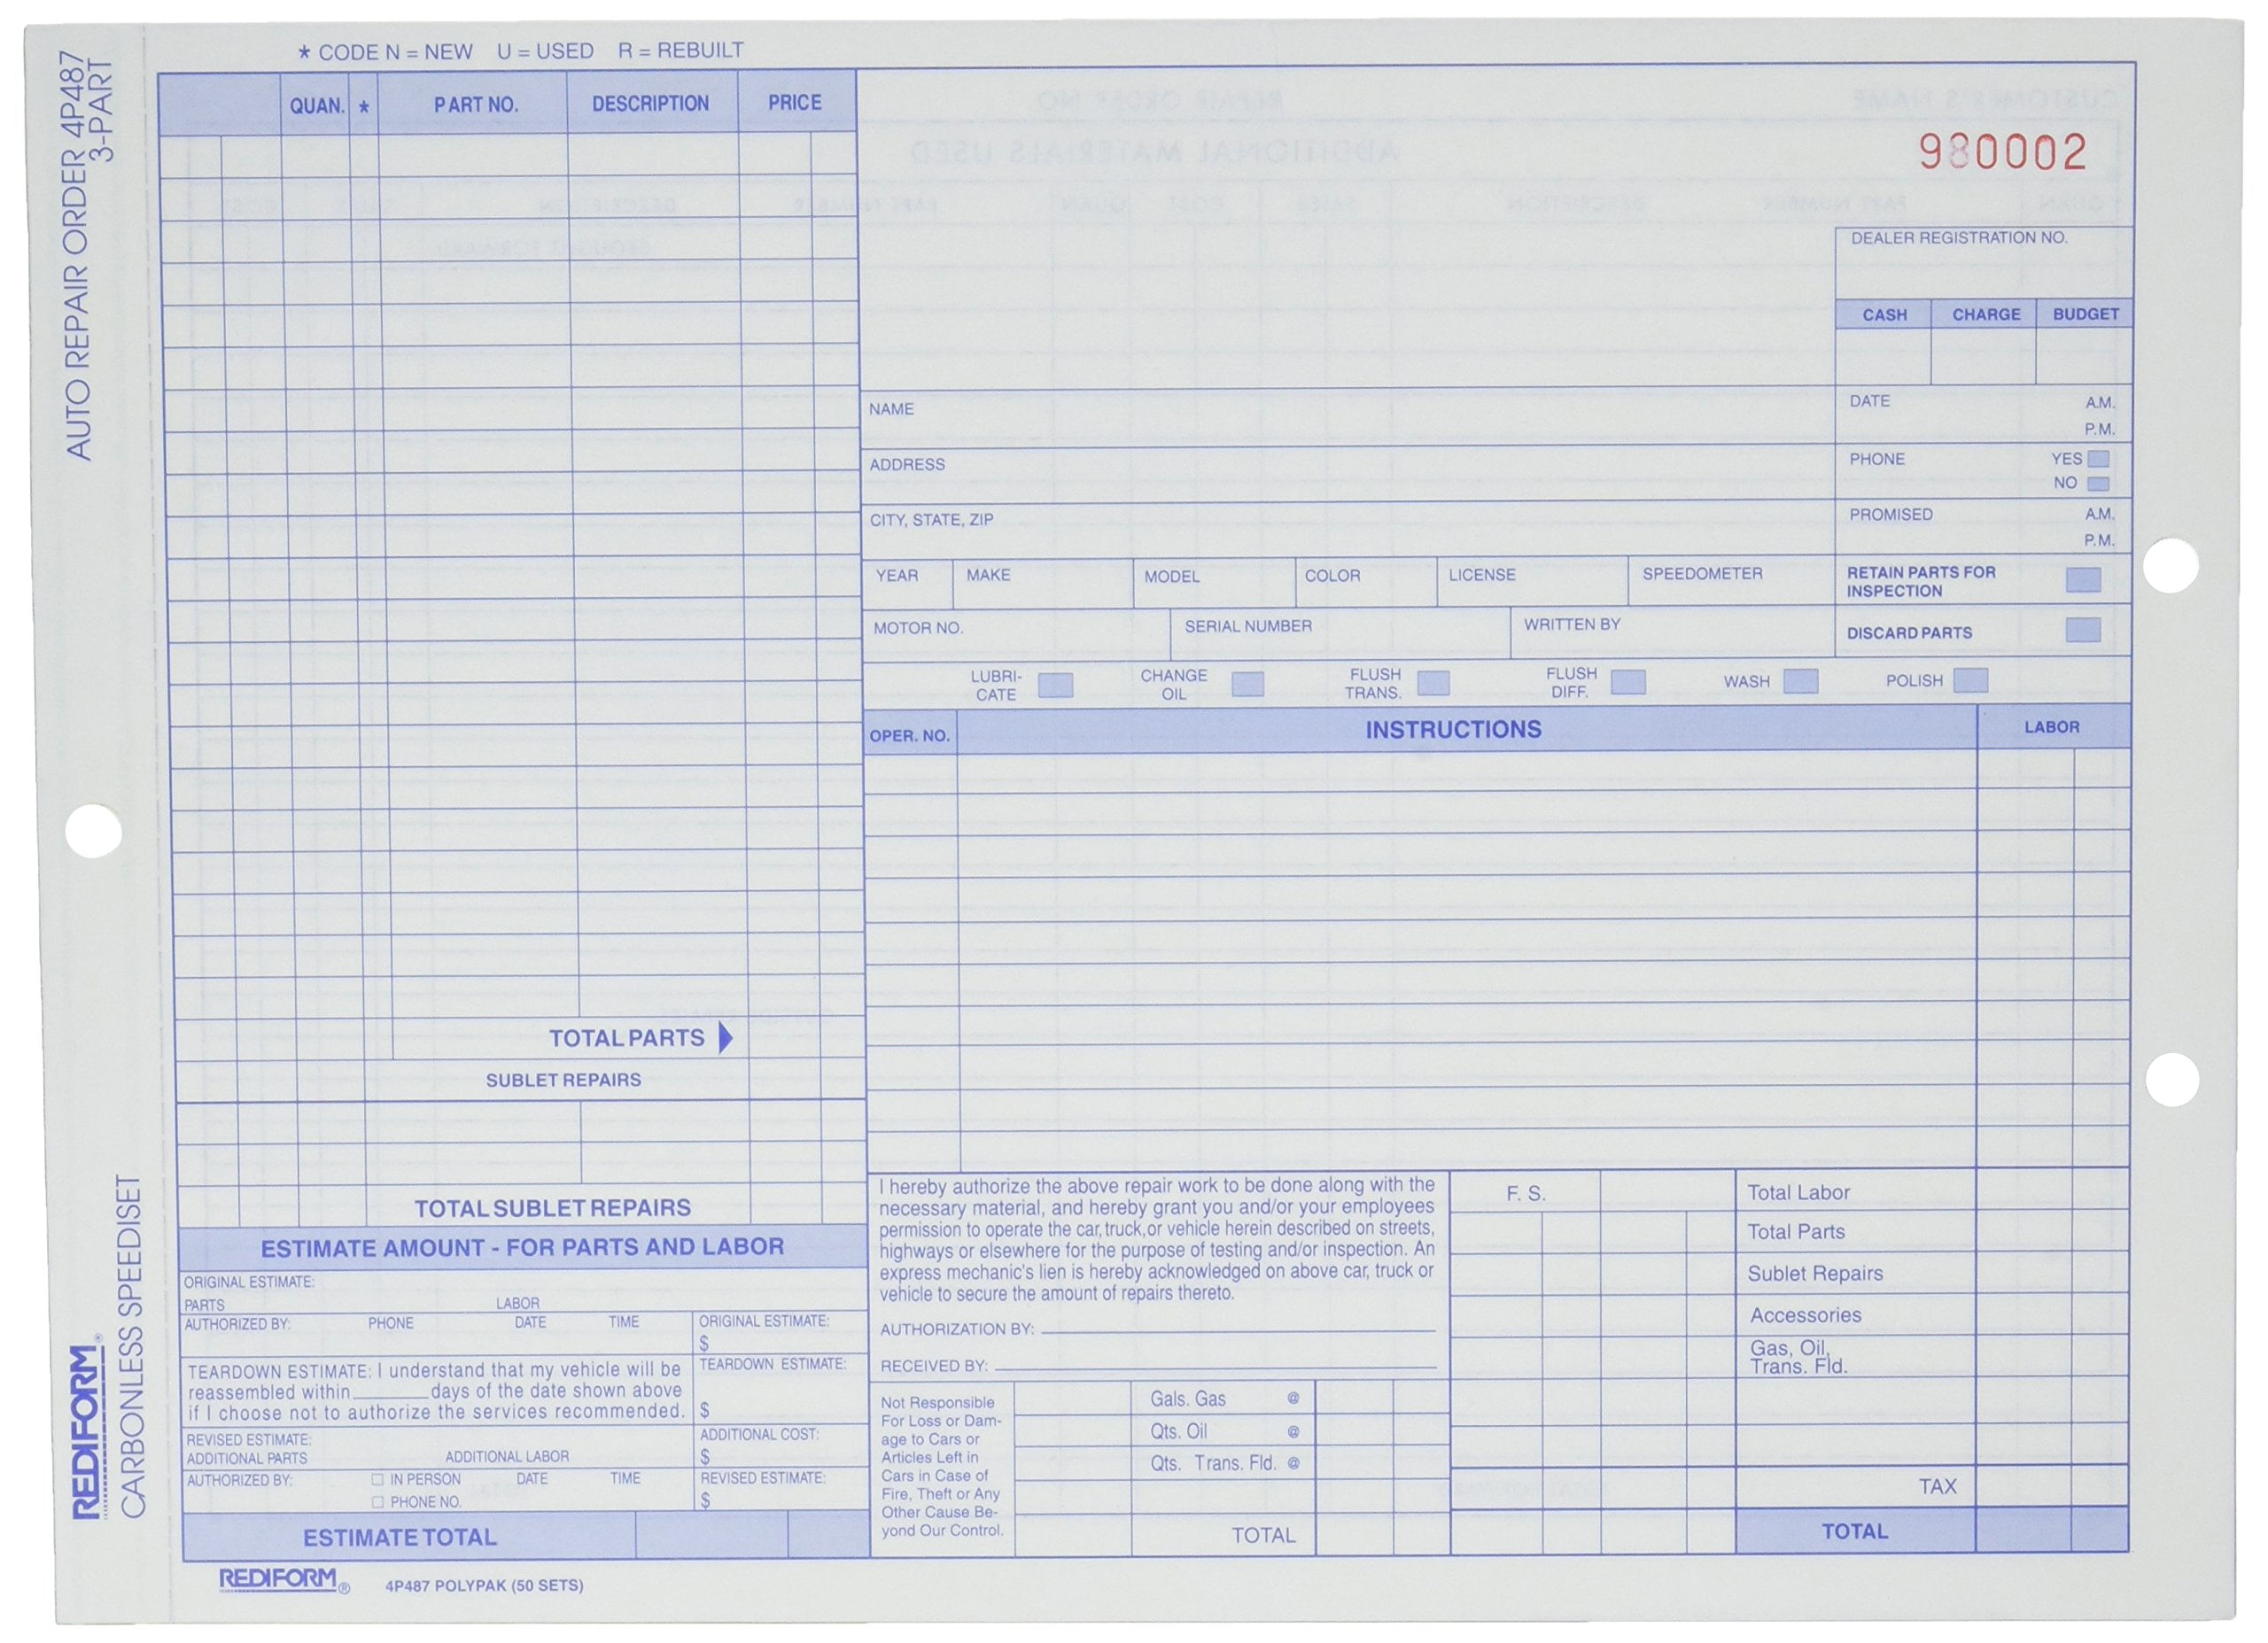 AUTO REPAIR ORDER 4P487
3-PART
REDIFORM®
CARBONLESS SPEEDISET
* CODE N = NEW U = USED R = REBUILT
QUAN. * PART NO. DESCRIPTION PRICE
TOTAL PARTS
SUBLET REPAIRS
TOTAL SUBLET REPAIRS
ESTIMATE AMOUNT - FOR PARTS AND LABOR
ORIGINAL ESTIMATE:
PARTS LABOR
AUTHORIZED BY: PHONE DATE TIME ORIGINAL ESTIMATE:
$
TEARDOWN ESTIMATE: I understand that my vehicle will be
reassembled within_______days of the date shown above
if I choose not to authorize the services recommended.
TEARDOWN ESTIMATE:
$
REVISED ESTIMATE:
ADDITIONAL PARTS ADDITIONAL LABOR
ADDITIONAL COST:
$
AUTHORIZED BY: ☐ IN PERSON DATE TIME REVISED ESTIMATE:
☐ PHONE NO. $
ESTIMATE TOTAL
REDIFORM® 4P487 POLYPAK (50 SETS)
980002
DEALER REGISTRATION NO.
CASH CHARGE BUDGET
NAME DATE A.M.
P.M.
ADDRESS PHONE YES
NO
CITY, STATE, ZIP PROMISED A.M.
P.M.
YEAR MAKE MODEL COLOR LICENSE SPEEDOMETER RETAIN PARTS FOR
INSPECTION
MOTOR NO. SERIAL NUMBER WRITTEN BY DISCARD PARTS
LUBRI-
CATE
CHANGE
OIL
FLUSH
TRANS.
FLUSH
DIFF.
WASH
POLISH
OPER. NO. INSTRUCTIONS LABOR
I hereby authorize the above repair work to be done along with the
necessary material, and hereby grant you and/or your employees
permission to operate the car, truck, or vehicle herein described on streets,
highways or elsewhere for the purpose of testing and/or inspection. An
express mechanic's lien is hereby acknowledged on above car, truck or
vehicle to secure the amount of repairs thereto.
AUTHORIZATION BY:
RECEIVED BY:
Not Responsible
For Loss or Dam-
age to Cars or
Articles Left in
Cars in Case of
Fire, Theft or Any
Other Cause Be-
yond Our Control.
Gals. Gas @
Qts. Oil @
Qts. Trans. Fld. @
TOTAL
F. S.
Total Labor
Total Parts
Sublet Repairs
Accessories
Gas, Oil,
Trans. Fld.
TAX
TOTAL